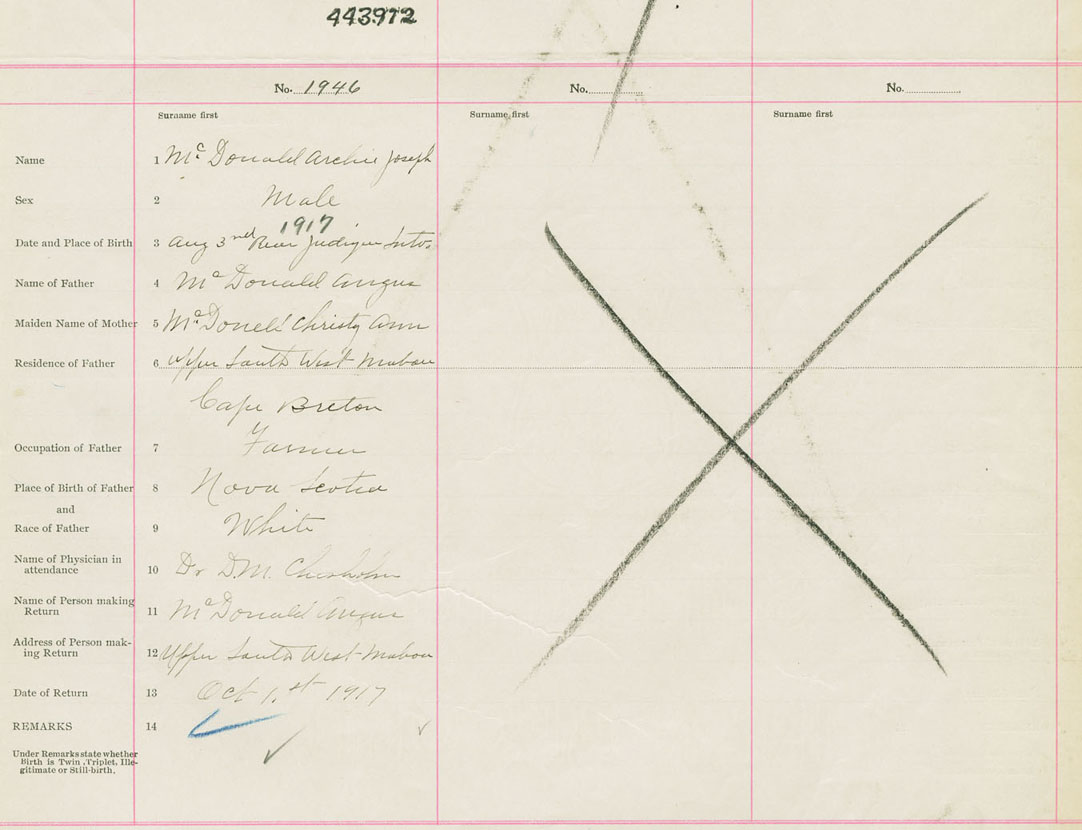 443972
No. 1946 No. No.
Surname first Surname first Surname first
Name 1 Mc Donald Archie Joseph
Sex 2 Male
1917
Date and Place of Birth 3 Aug 3rd Rear Judique Intv.
Name of Father 4 Mc Donald Angus
Maiden Name of Mother 5 Mc Donell Christy Ann
Residence of Father 6 Upper South West Mabou
Cape Breton
Occupation of Father 7 Farmer
Place of Birth of Father 8 Nova Scotia
and
Race of Father 9 White
Name of Physician in
attendance 10 Dr D.M. Chisholm
Name of Person making
Return 11 Mc Donald Angus
Address of Person mak-
ing Return 12 Upper South West Mabou
Date of Return 13 Oct 1st 1917
REMARKS 14
Under Remarks state whether
Birth is Twin, Triplet, Ille-
gitimate or Still-birth.